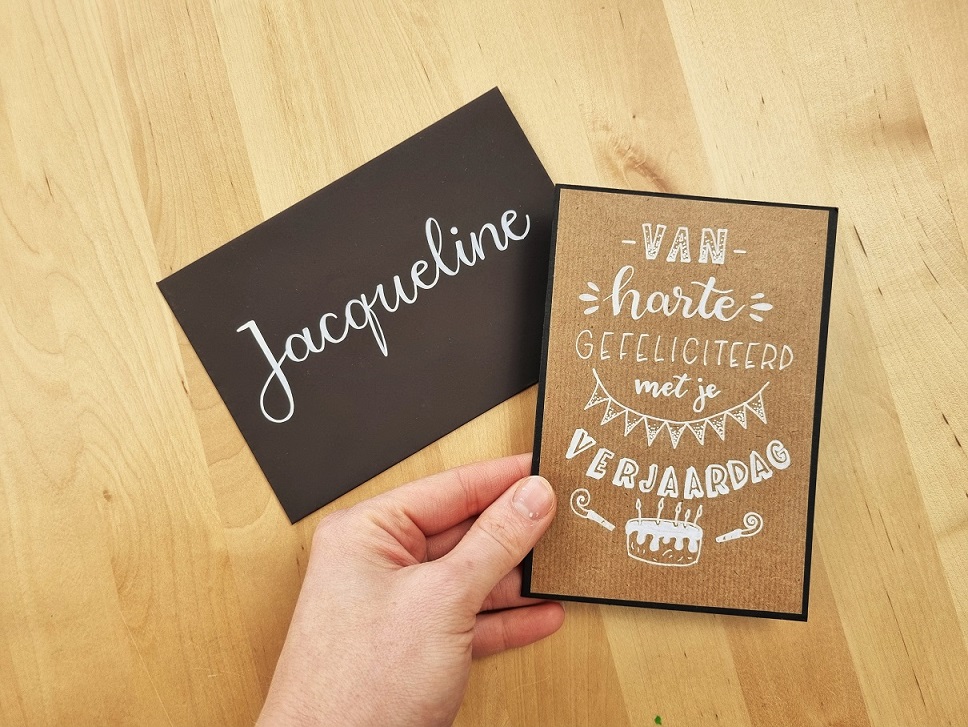 Jacqueline
-VAN-
harte
GEFELICITEERD
met je
VERJAARDAG